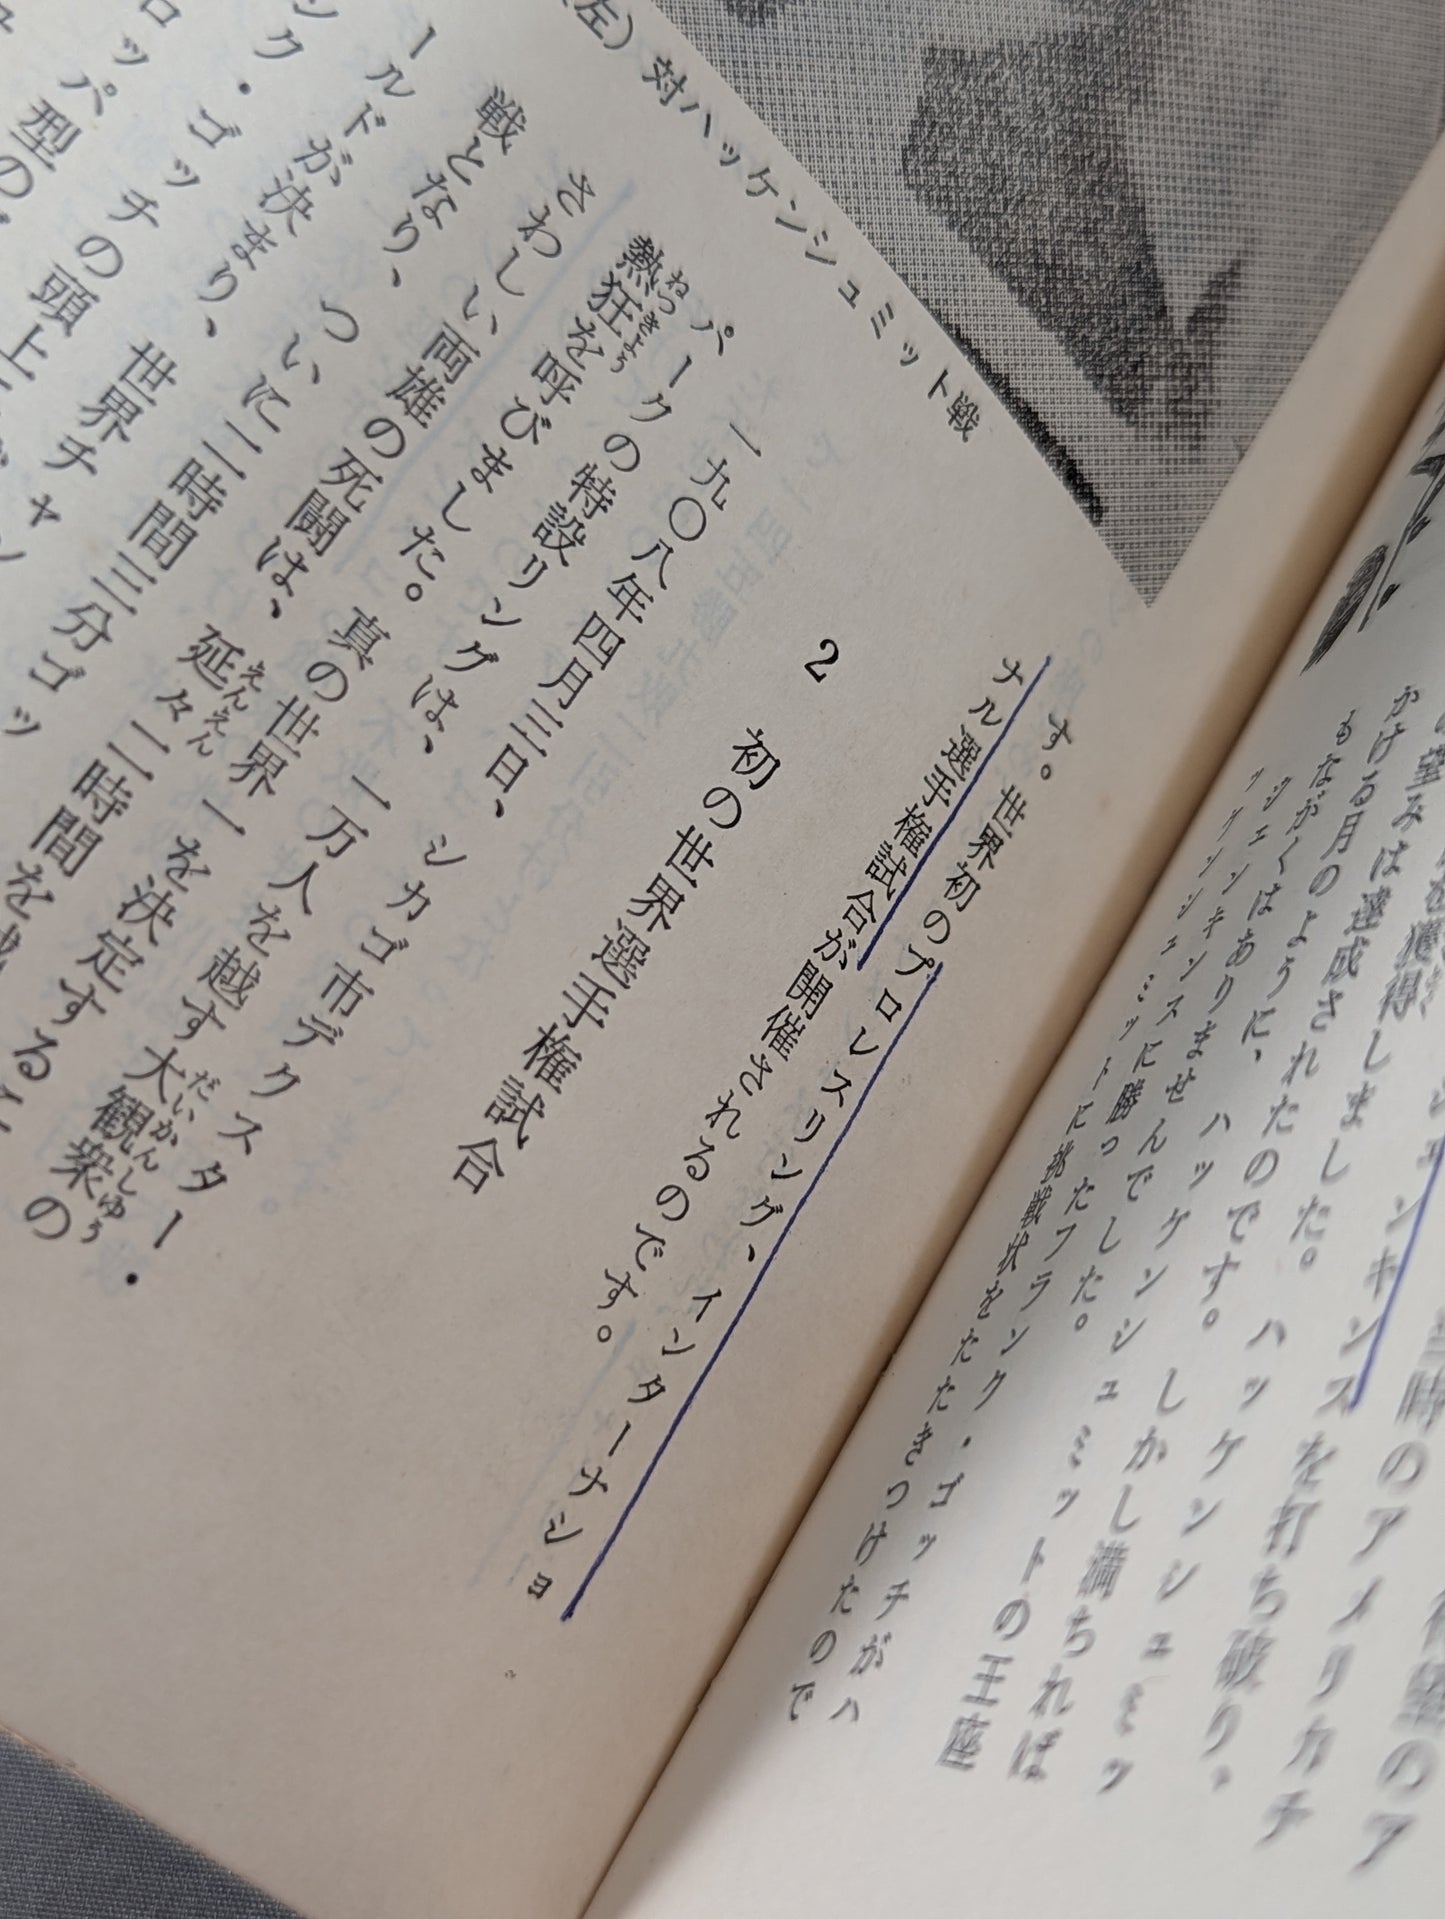 望のア
時のアメリカチ
ェンキンスを打ち破り、
を獲得しました。ハッケンシュミッ
望みは達成されたのです。しかし満ちれば
かける月のように、ハッケンシュミットの王座
もながくはありませんでした。
ジェンキンスに勝ったフランク・ゴッチがハ
ッケンシュミットに挑戦状をたたきつけたので
す。世界初のプロレスリング、インターナショ
ナル選手権試合が開催されるのです。
左）対ハッケンシュミット戦
2 初の世界選手権試合
一九〇八年四月三日、シカゴ市デクスター・
パークの特設リングは、一万人を越す大観衆の
熱狂を呼びました。真の世界一を決定する
さわしい両雄の死闘は、延々二時間を
戦となり、ついに二時間三分ゴッ
ールドが決まり、世界チャン
ンク・ゴッチの頭上
ロッパ型の